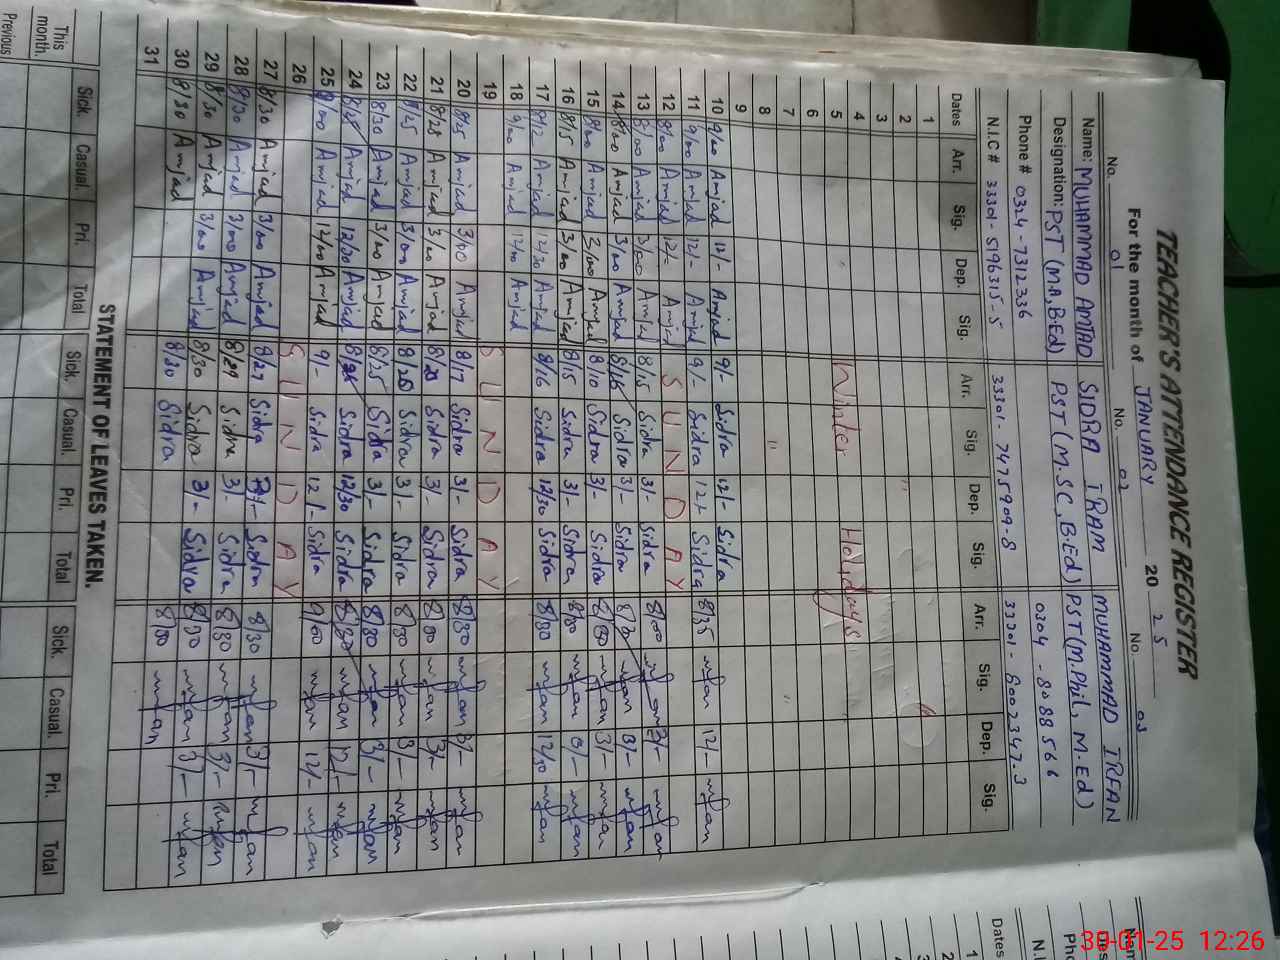 TEACHER'S ATTENDANCE REGISTER
For the month of JANUARY 20 25
No. 01 No. 02 No. 03
Name: MUHAMMAD AMJAD SIDRA IRAM MUHAMMAD IRFAN
Designation: PST (M.A, B.Ed) PST (M.SC, B.Ed) PST (M.Phil, M.Ed)
Phone # 0324-7312336 0304-8088566
N.I.C # 33301-5196315-5 33301-7475909-8 33301-6002347-3
Dates Arr. Sig. Dep. Sig. Arr. Sig. Dep. Sig. Arr. Sig. Dep. Sig.
1
2
3
4
5 Winter Holidays
6
7
8
9
10 9/00 Amjad 12/- Amjad 9/- Sidra 12/- Sidra
11 9/00 Amjad 12/- Amjad 9/- Sidra 12/- Sidra 8/35 Irfan 12/- Irfan
12 SUNDAY
13 8/00 Amjad 3/00 Amjad 8/15 Sidra 3/- Sidra 8/00 Irfan 3/- Irfan
14 Amjad 3/00 Amjad 8/16 Sidra 3/- Sidra Irfan 3/- Irfan
15 8/00 Amjad 3/00 Amjad 8/10 Sidra 3/- Sidra 8/30 Irfan 3/- Irfan
16 8/15 Amjad 3/00 Amjad 8/15 Sidra 3/- Sidra 8/30 Irfan 3/- Irfan
17 8/12 Amjad 12/30 Amjad 8/16 Sidra 12/30 Sidra 8/30 Irfan 12/30 Irfan
18 9/00 Amjad 12/00 Amjad
19 SUNDAY
20 8/25 Amjad 3/00 Amjad 8/17 Sidra 3/- Sidra 8/30 Irfan 3/- Irfan
21 8/28 Amjad 3/00 Amjad Sidra 3/- Sidra 8/30 Irfan 3/- Irfan
22 8/25 Amjad 3/00 Amjad Sidra 3/- Sidra 8/30 Irfan 3/- Irfan
23 8/30 Amjad 3/00 Amjad 8/25 Sidra 3/- Sidra 8/30 Irfan 3/- Irfan
24 Amjad 12/30 Amjad Sidra 12/30 Sidra 8/30 Irfan 12/- Irfan
25 9/00 Amjad 12/00 Amjad 9/- Sidra 12/- Sidra 9/00 Irfan 12/- Irfan
26 SUNDAY
27 8/30 Amjad 3/00 Amjad 8/27 Sidra 3/- Sidra 8/30 Irfan 3/- Irfan
28 8/30 Amjad 3/00 Amjad 8/29 Sidra 3/- Sidra 8/30 Irfan 3/- Irfan
29 8/30 Amjad 3/00 Amjad 8/30 Sidra 3/- Sidra 8/30 Irfan 3/- Irfan
30 8/30 Amjad 8/30 Sidra 8/30 Irfan
31
STATEMENT OF LEAVES TAKEN.
Sick. Casual. Pri. Total Sick. Casual. Pri. Total Sick. Casual. Pri. Total
This month.
Previous
Dates 1
2
30-01-25 12:26